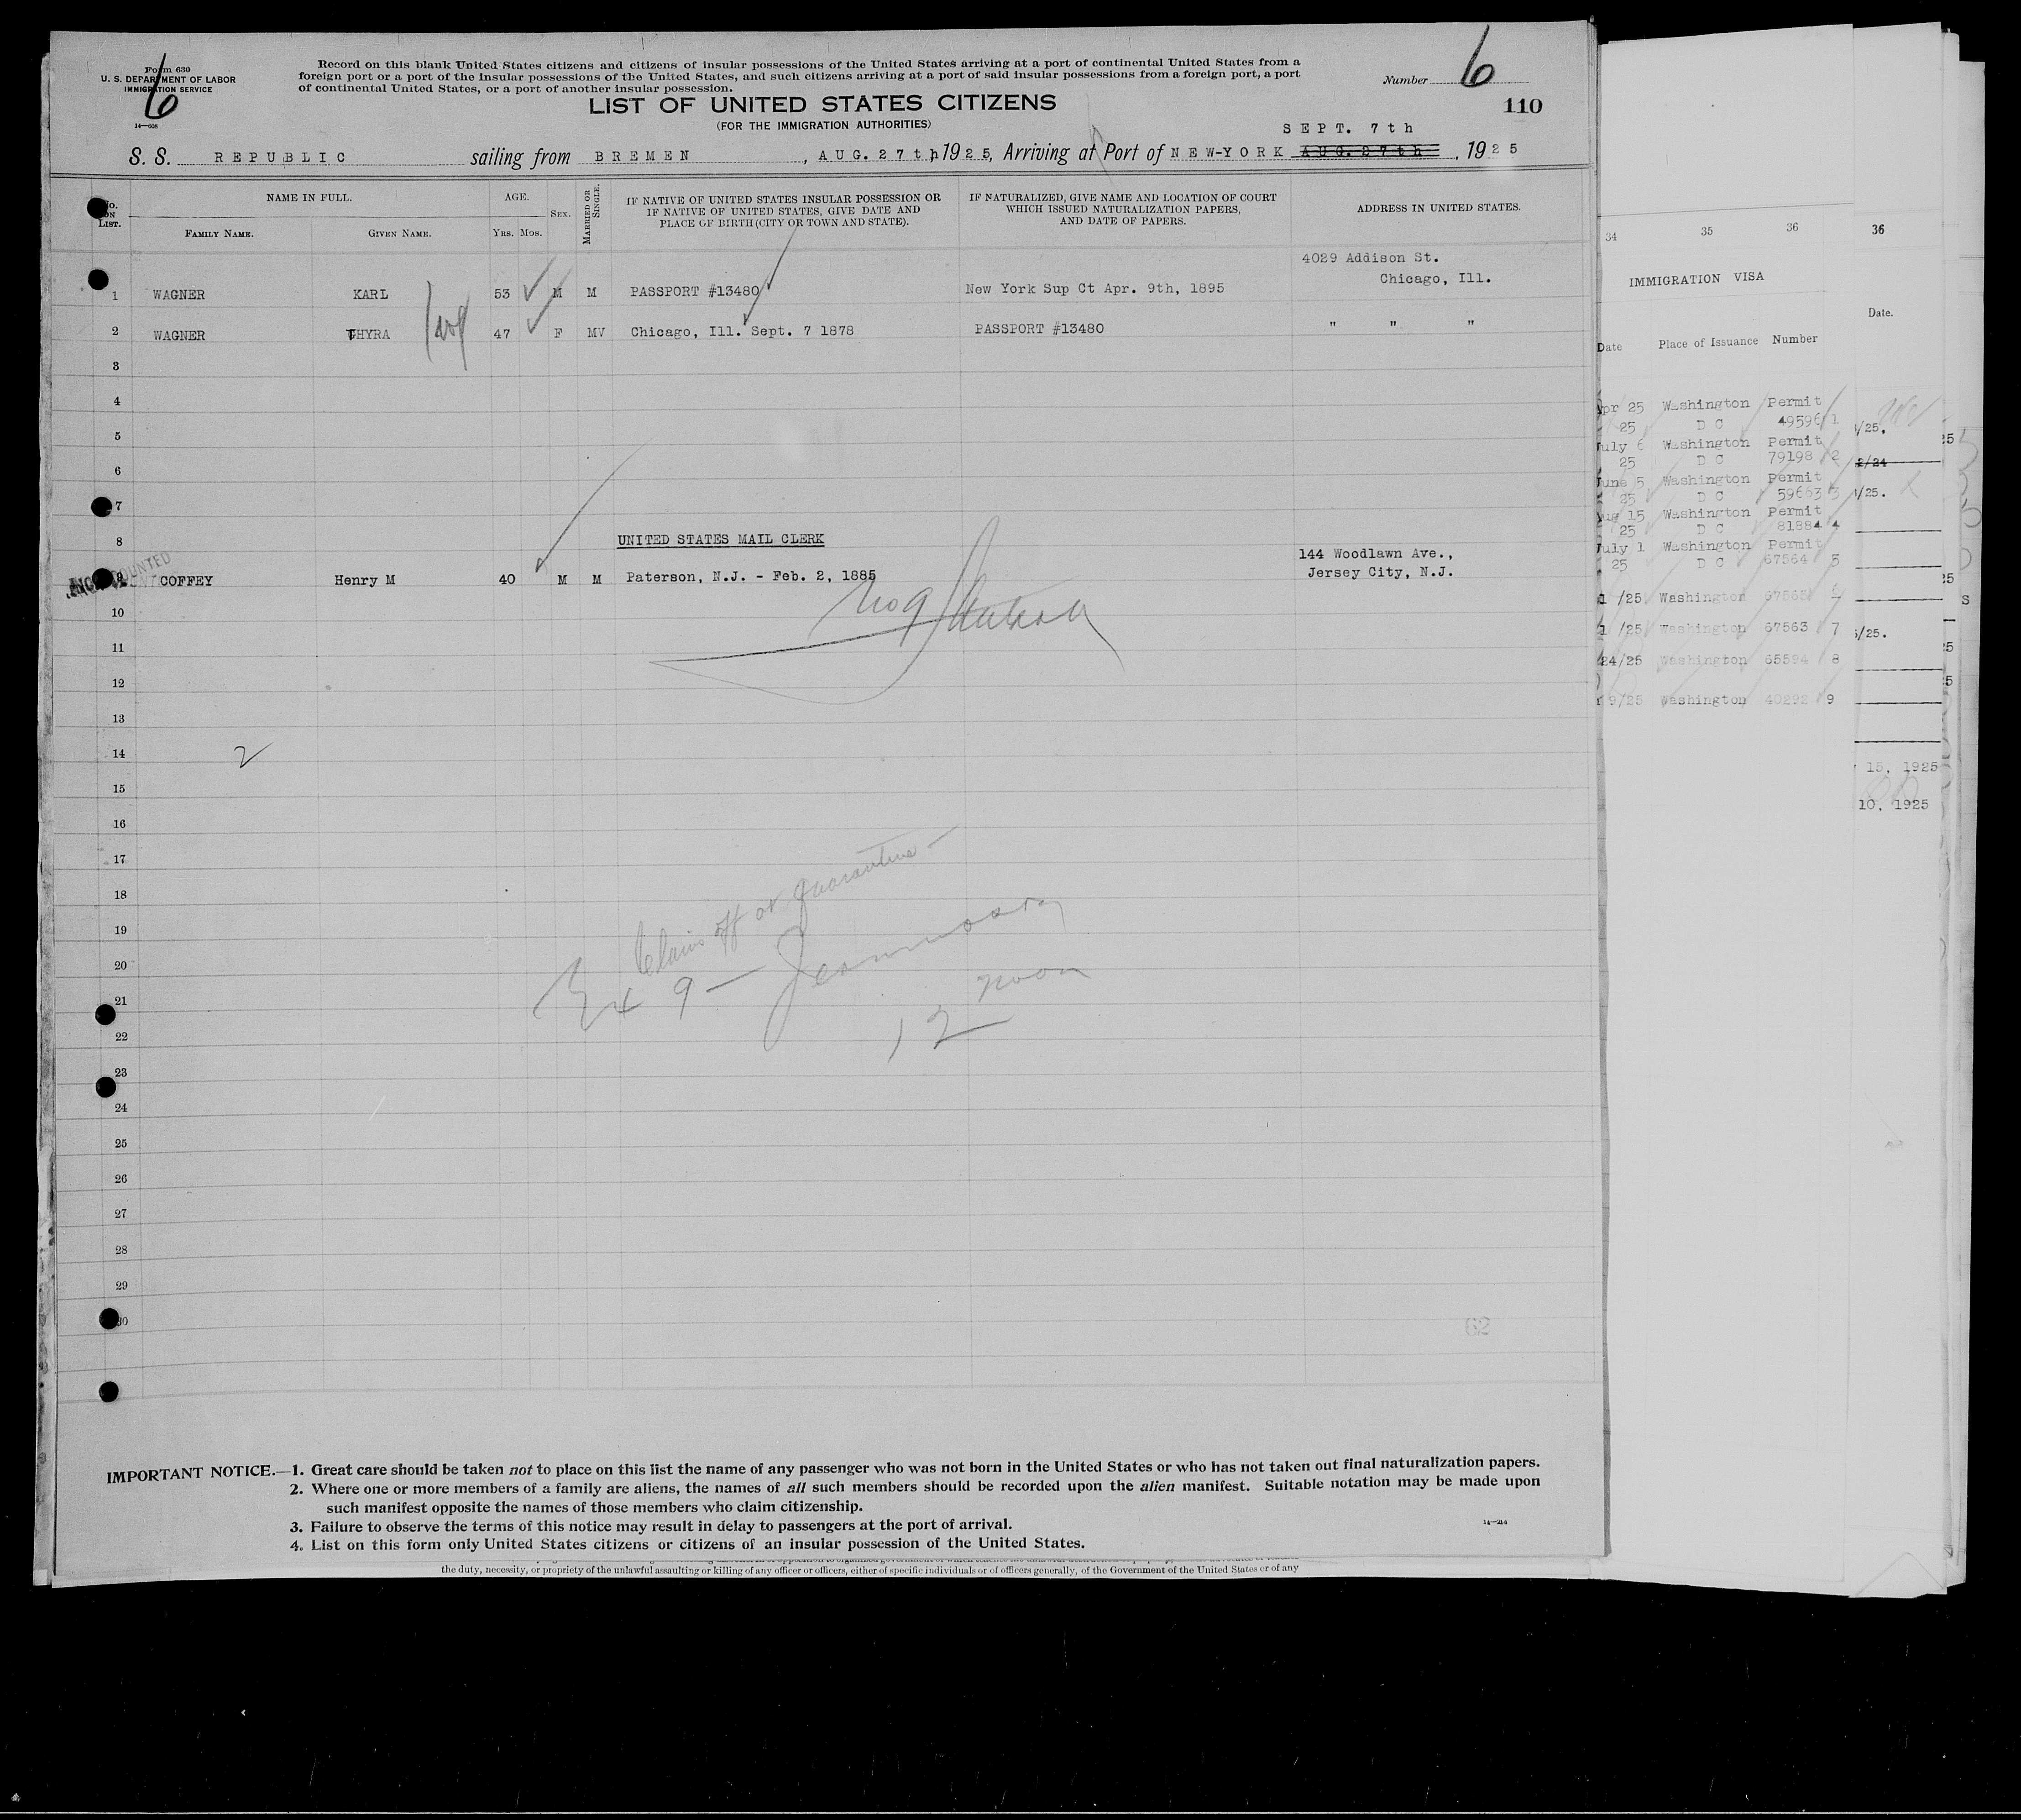 Form 630
U. S. DEPARTMENT OF LABOR
IMMIGRATION SERVICE
14—608
6
Record on this blank United States citizens and citizens of insular possessions of the United States arriving at a port of continental United States from a
foreign port or a port of the insular possessions of the United States, and such citizens arriving at a port of said insular possessions from a foreign port, a port
of continental United States, or a port of another insular possession.
Number 6
110
LIST OF UNITED STATES CITIZENS
(FOR THE IMMIGRATION AUTHORITIES)
SEPT. 7th
S. S. REPUBLIC sailing from BREMEN, AUG. 27th 1925, Arriving at Port of NEW-YORK AUG. 27th, 1925
No. ON LIST.
NAME IN FULL.
FAMILY NAME. GIVEN NAME.
AGE.
YRS. MOS.
SEX.
MARRIED OR SINGLE.
IF NATIVE OF UNITED STATES INSULAR POSSESSION OR
IF NATIVE OF UNITED STATES, GIVE DATE AND
PLACE OF BIRTH (CITY OR TOWN AND STATE).
IF NATURALIZED, GIVE NAME AND LOCATION OF COURT
WHICH ISSUED NATURALIZATION PAPERS,
AND DATE OF PAPERS.
ADDRESS IN UNITED STATES.
4029 Addison St.
Chicago, Ill.
1 WAGNER KARL 53 M M PASSPORT #13480 New York Sup Ct Apr. 9th, 1895
2 WAGNER THYRA 47 F MV Chicago, Ill. Sept. 7 1878 PASSPORT #13480 " " "
3
4
5
6
7
8 UNITED STATES MAIL CLERK
144 Woodlawn Ave.,
9 COFFEY Henry M 40 M M Paterson, N.J. - Feb. 2, 1885 Jersey City, N.J.
10
11
12
13
14 2
15
16
17
18
19
20
21
22
23
24
25
26
27
28
29
30
off at Quarantine —
Ex 9 —
12 noon
62
IMPORTANT NOTICE.—1. Great care should be taken not to place on this list the name of any passenger who was not born in the United States or who has not taken out final naturalization papers.
2. Where one or more members of a family are aliens, the names of all such members should be recorded upon the alien manifest. Suitable notation may be made upon
such manifest opposite the names of those members who claim citizenship.
3. Failure to observe the terms of this notice may result in delay to passengers at the port of arrival.
4. List on this form only United States citizens or citizens of an insular possession of the United States.
14—214
the duty, necessity, or propriety of the unlawful assaulting or killing of any officer or officers, either of specific individuals or of officers generally, of the Government of the United States or of any
34 35 36
IMMIGRATION VISA
Date Place of Issuance Number
Apr 25 Washington Permit
25 D C 49596 1
July 6 Washington Permit
25 D C 79198 2
June 5 Washington Permit
25 D C 59663 3
Aug 15 Washington Permit
25 D C 81884 4
July 1 Washington Permit
25 D C 67564 5
1 /25 Washington 67565 6
1 /25 Washington 67563 7
24/25 Washington 65594 8
9/25 Washington 40292 9
36
Date.
/25.
2/24
/25.
/25.
15, 1925
10, 1925